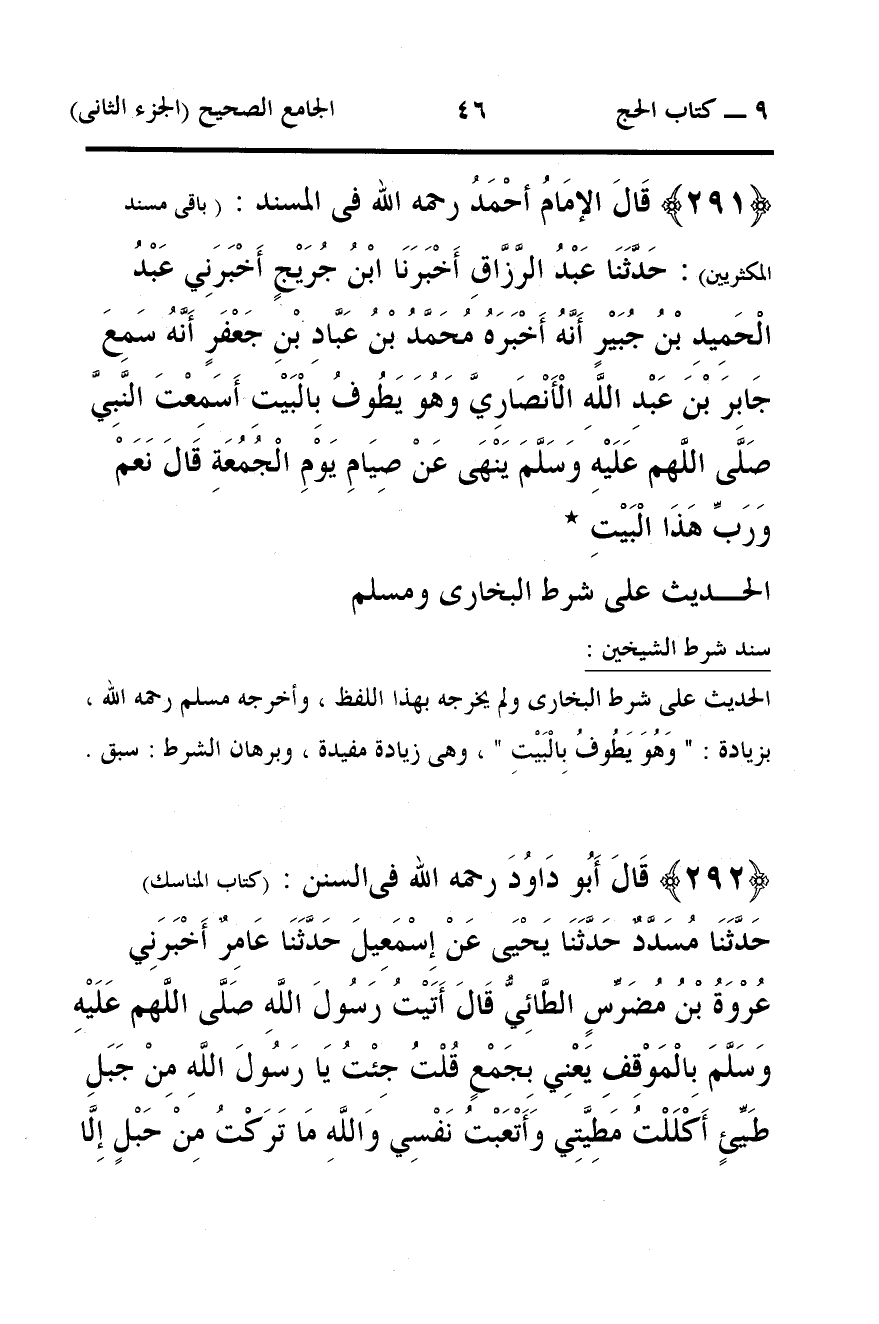 ٩ ــ كتاب الحج ٤٦ الجامع الصحيح (الجزء الثانى)
﴿٢٩١﴾ قَالَ الإِمَامُ أحْمَدُ رحمه الله فى المسند : ( باقى مسند
المكثريين) : حَدَّثَنَا عَبْدُ الرَّزَّاقِ أَخْبَرَنَا ابْنُ جُرَيْجٍ أَخْبَرَنِي عَبْدُ
الْحَمِيدِ بْنُ جُبَيْرٍ أَنَّهُ أَخْبَرَهُ مُحَمَّدُ بْنُ عَبَّادِ بْنِ جَعْفَرٍ أَنَّهُ سَمِعَ
جَابِرَ بْنَ عَبْدِ اللَّهِ الْأَنْصَارِيَّ وَهُوَ يَطُوفُ بِالْبَيْتِ أَسَمِعْتَ النَّبِيَّ
صَلَّى اللَّهم عَلَيْهِ وَسَلَّمَ يَنْهَى عَنْ صِيَامِ يَوْمِ الْجُمُعَةِ قَالَ نَعَمْ
وَرَبِّ هَذَا الْبَيْتِ *
الحــديث على شرط البخارى ومسلم
سند شرط الشيخين :
الحديث على شرط البخارى ولم يخرجه بهذا اللفظ ، وأخرجه مسلم رحمه الله ،
بزيادة : " وَهُوَ يَطُوفُ بِالْبَيْتِ " ، وهى زيادة مفيدة ، وبرهان الشرط : سبق .
﴿٢٩٢﴾ قَالَ أَبُو دَاوُدَ رحمه الله فى السنن : (كتاب المناسك)
حَدَّثَنَا مُسَدَّدٌ حَدَّثَنَا يَحْيَى عَنْ إِسْمَعِيلَ حَدَّثَنَا عَامِرٌ أَخْبَرَنِي
عُرْوَةُ بْنُ مُضَرِّسٍ الطَّائِيُّ قَالَ أَتَيْتُ رَسُولَ اللَّهِ صَلَّى اللَّهم عَلَيْهِ
وَسَلَّمَ بِالْمَوْقِفِ يَعْنِي بِجَمْعٍ قُلْتُ جِئْتُ يَا رَسُولَ اللَّهِ مِنْ جَبَلِ
طَيِّئٍ أَكْلَلْتُ مَطِيَّتِي وَأَتْعَبْتُ نَفْسِي وَاللَّهِ مَا تَرَكْتُ مِنْ حَبْلٍ إِلَّا